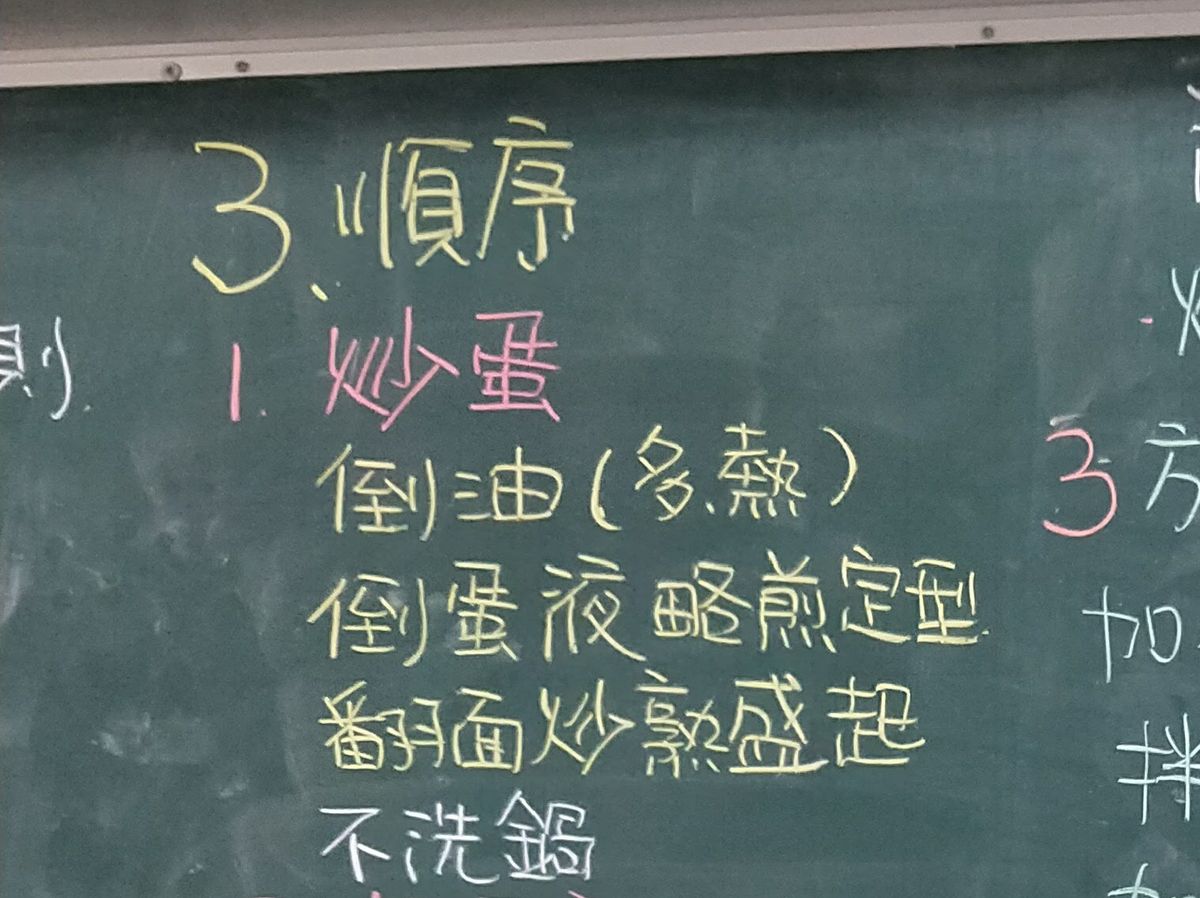 3、順序
1. 炒蛋
倒油(多、熱)
倒蛋液略煎定型
翻面炒熟盛起
不洗鍋
則
3 方
加
拌